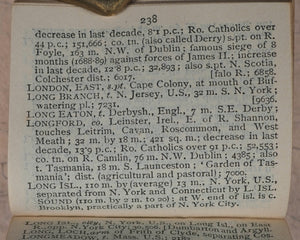 238
decrease in last decade, 8'1 p.c.; Ro. Catholics over
44 p.c.; 151,666; co. tn. (also called Derry) s.pt. on R.
Foyle, 163 m. N.W. of Dublin; famous siege of 8
months (1688-89) against forces of James II.; increase
in last decade, 12'8 p.c.; 32,893; also s.pt. on S.
Colchester dist.; 6017. [falo R.; 6858.
LONDON, EAST, s.pt. Cape Colony, at mouth of Buf-
LONG BRANCH, t. N. Jersey, U.S., 32 m. S. N. York;
watering pl.; 7231. [9636.
LONG EATON, t. Derbysh., Engl., 7 m. S.E. Derby;
LONGFORD, co. Leinster, Irel., E. of R. Shannon,
touches Leitrim, Cavan, Roscommon, and West
Meath; 32 m. by 18 m.; 421 sq. m.; decrease in last
decade, 13'9 p.c.; Ro. Catholics over 91 p.c.; 52,553;
co. tn. on R. Camlin, 76 m. N.W. Dublin; 4385; also
t. Tasmania, 18 m. S. Launceston; 'Garden of Tas-
mania'; dist. (agricultural and pastoral); 7000.
LONG ISL., 110 m. by (average) 13 m. N. York, U.S.,
separated from N. York and Connecticut by L. ISL.
SOUND (110 m. by 2 m. to 20); at W. end of isl. is c.
Brooklyn, practically a part of N. York City.